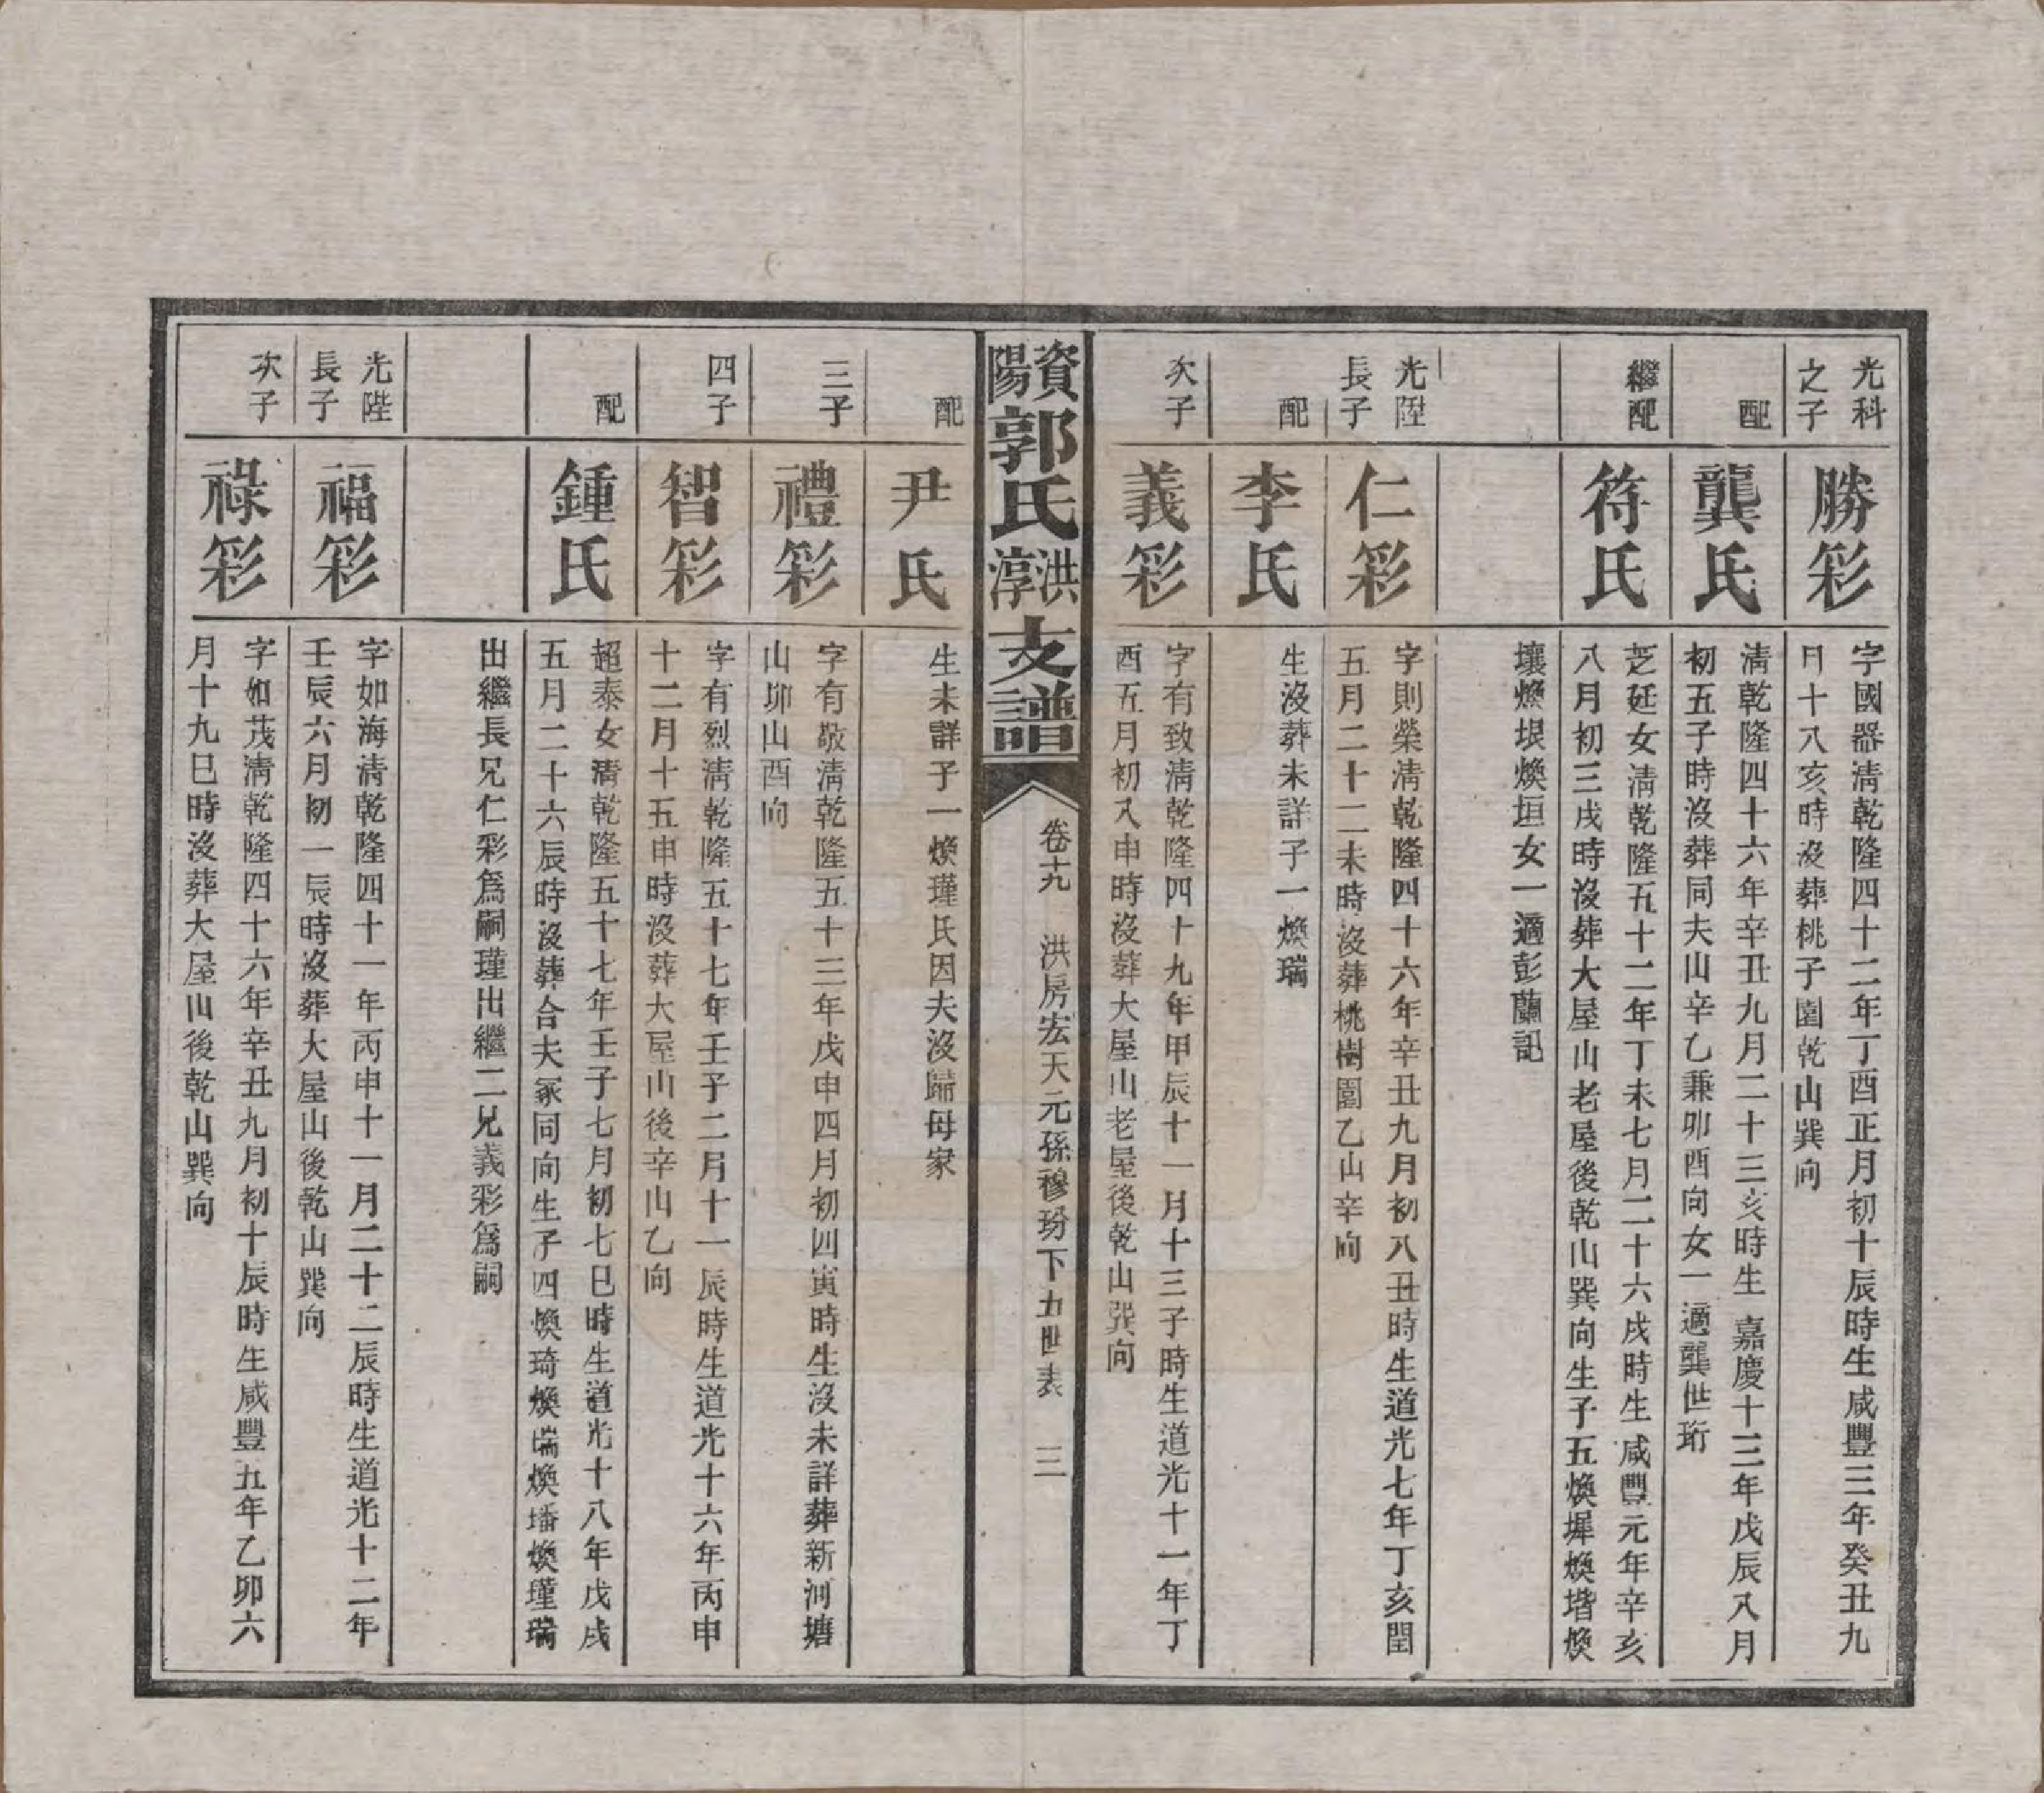 光科
之子
勝彩
字國器清乾隆四十二年丁酉正月初十辰時生咸豐三年癸丑九
月十八亥時沒葬桃子園乾山巽向
配
龔氏
清乾隆四十六年辛丑九月二十三亥時生嘉慶十三年戊辰八月
初五子時沒葬同夫山辛乙兼卯酉向女一適龔世珩
繼配
符氏
芝廷女清乾隆五十二年丁未七月二十六戌時生咸豐元年辛亥
八月初三戌時沒葬大屋山老屋後乾山巽向生子五煥墀煥堦煥
壤煥垠煥垣女一適彭蘭記
光陞
長子
仁彩
字則榮清乾隆四十六年辛丑九月初八丑時生道光七年丁亥閏
五月二十二未時沒葬桃樹園乙山辛向
配
李氏
生沒葬未詳子一煥瑞
次子
義彩
字有致清乾隆四十九年甲辰十一月十三子時生道光十一年丁
酉五月初八申時沒葬大屋山老屋後乾山巽向
資陽郭氏洪淳支譜
卷十九 洪房宏天元孫穆玢下五世表 三
配
尹氏
生未詳子一煥瑾氏因夫沒歸母家
三子
禮彩
字有敬清乾隆五十三年戊申四月初四寅時生沒未詳葬新河塘
山卯山酉向
四子
智彩
字有烈清乾隆五十七年壬子二月十一辰時生道光十六年丙申
十二月十五申時沒葬大屋山後辛山乙向
配
鍾氏
超泰女清乾隆五十七年壬子七月初七巳時生道光十八年戊戌
五月二十六辰時沒葬合夫冢同向生子四煥琦煥瑞煥璠煥瑾瑞
出繼長兄仁彩爲嗣瑾出繼二兄義彩爲嗣
光陛
長子
福彩
字如海清乾隆四十一年丙申十一月二十二辰時生道光十二年
壬辰六月初一辰時沒葬大屋山後乾山巽向
次子
祿彩
字如茂清乾隆四十六年辛丑九月初十辰時生咸豐五年乙卯六
月十九巳時沒葬大屋山後乾山巽向